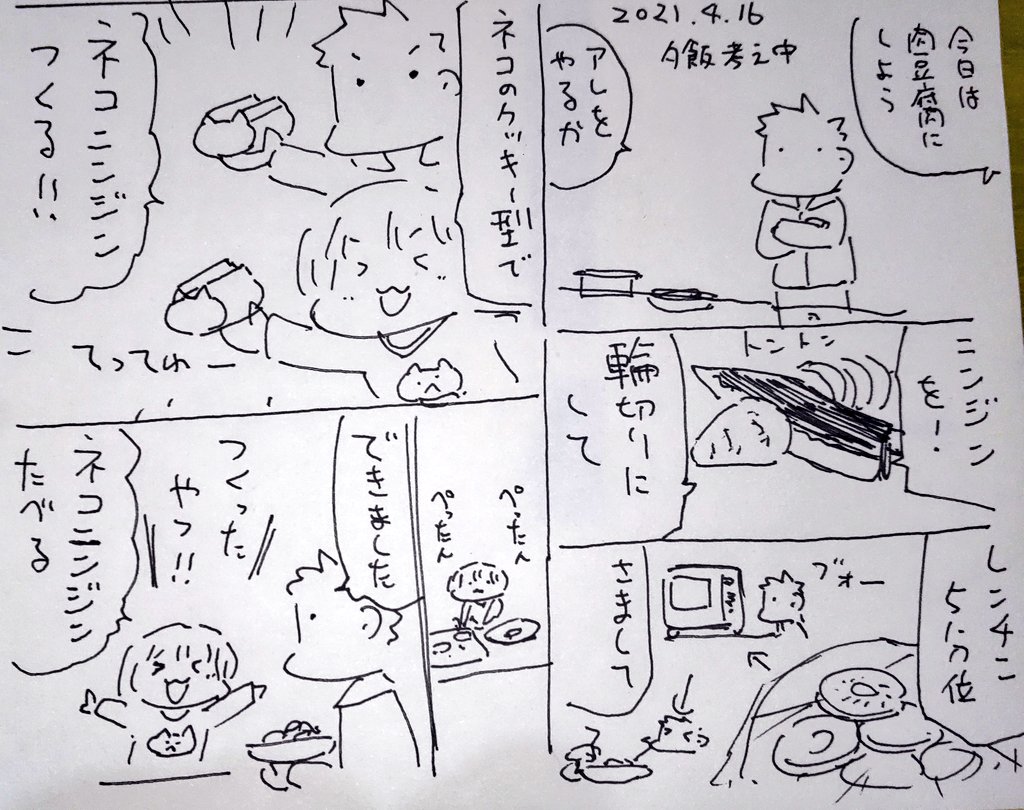 2021.4.16
夕飯考え中
今日は
肉豆腐に
しよう
アレを
やるか
ニンジン
を!
トントン
輪切りに
して
レンチン
5分位
ブォー
さまして
ネコのクッキー型で
ネコニンジン
つくる!!
てってれー
ぺったん
ぺったん
できました
つくった
やつ!!
ネコニンジン
たべる